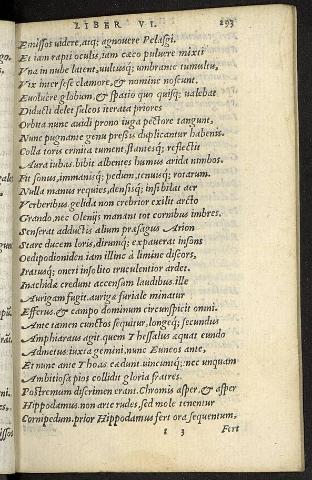 LIBER VI. 293
Emissos uidere, atq; agnouere Pelasgi.
Et iam rapti oculis, iam cæco puluere mixti
Vna in nube latent, uultusq; umbrante tumultu,
Vix inter sese clamore, & nomine noscunt.
Euoluere globum, & spatio quo quisq; ualebat
Diducti, delet sulcos iterata priores
Orbita nunc auidi prono iuga pectore tangunt,
Nunc pugnante genu pressis duplicantur habenis.
Colla toris crinita tument, stantesq; reflectit
Aura iubas, bibit albentes humus arida nimbos.
Fit sonus, immanisq; pedum, tenuisq; rotarum.
Nulla manus requies, densisq; insibilat aer
Verberibus, gelida non crebrior exilit arcto
Grando, nec Olenijs manant tot cornibus imbres.
Senserat adductis alium præsagus Arion
Stare ducem loris, dirumq; expauerat insons
Oedipodioniden, iam illinc à limine discors,
Iratusq; oneri insolito truculentior ardet.
Inachidæ credunt accensum laudibus, ille
Aurigam fugit, aurigæ furiale minatur
Efferus, & campo dominum circunspicit omni.
Ante tamen cunctos sequitur, longeq; secundus
Amphiaraus agit, quem Thessalus æquat eundo
Admetus, iuxta gemini, nunc Euneos ante,
Et nunc ante Thoas cædunt, uincuntq;, nec unquam
Ambitiosa pios collidit gloria fratres.
Postremum discrimen erant, Chromis asper, & asper
Hippodamus, non arte rudes, sed mole tenentur
Cornipedum, prior Hippodamus fert ora sequentum,
t 3 Fert